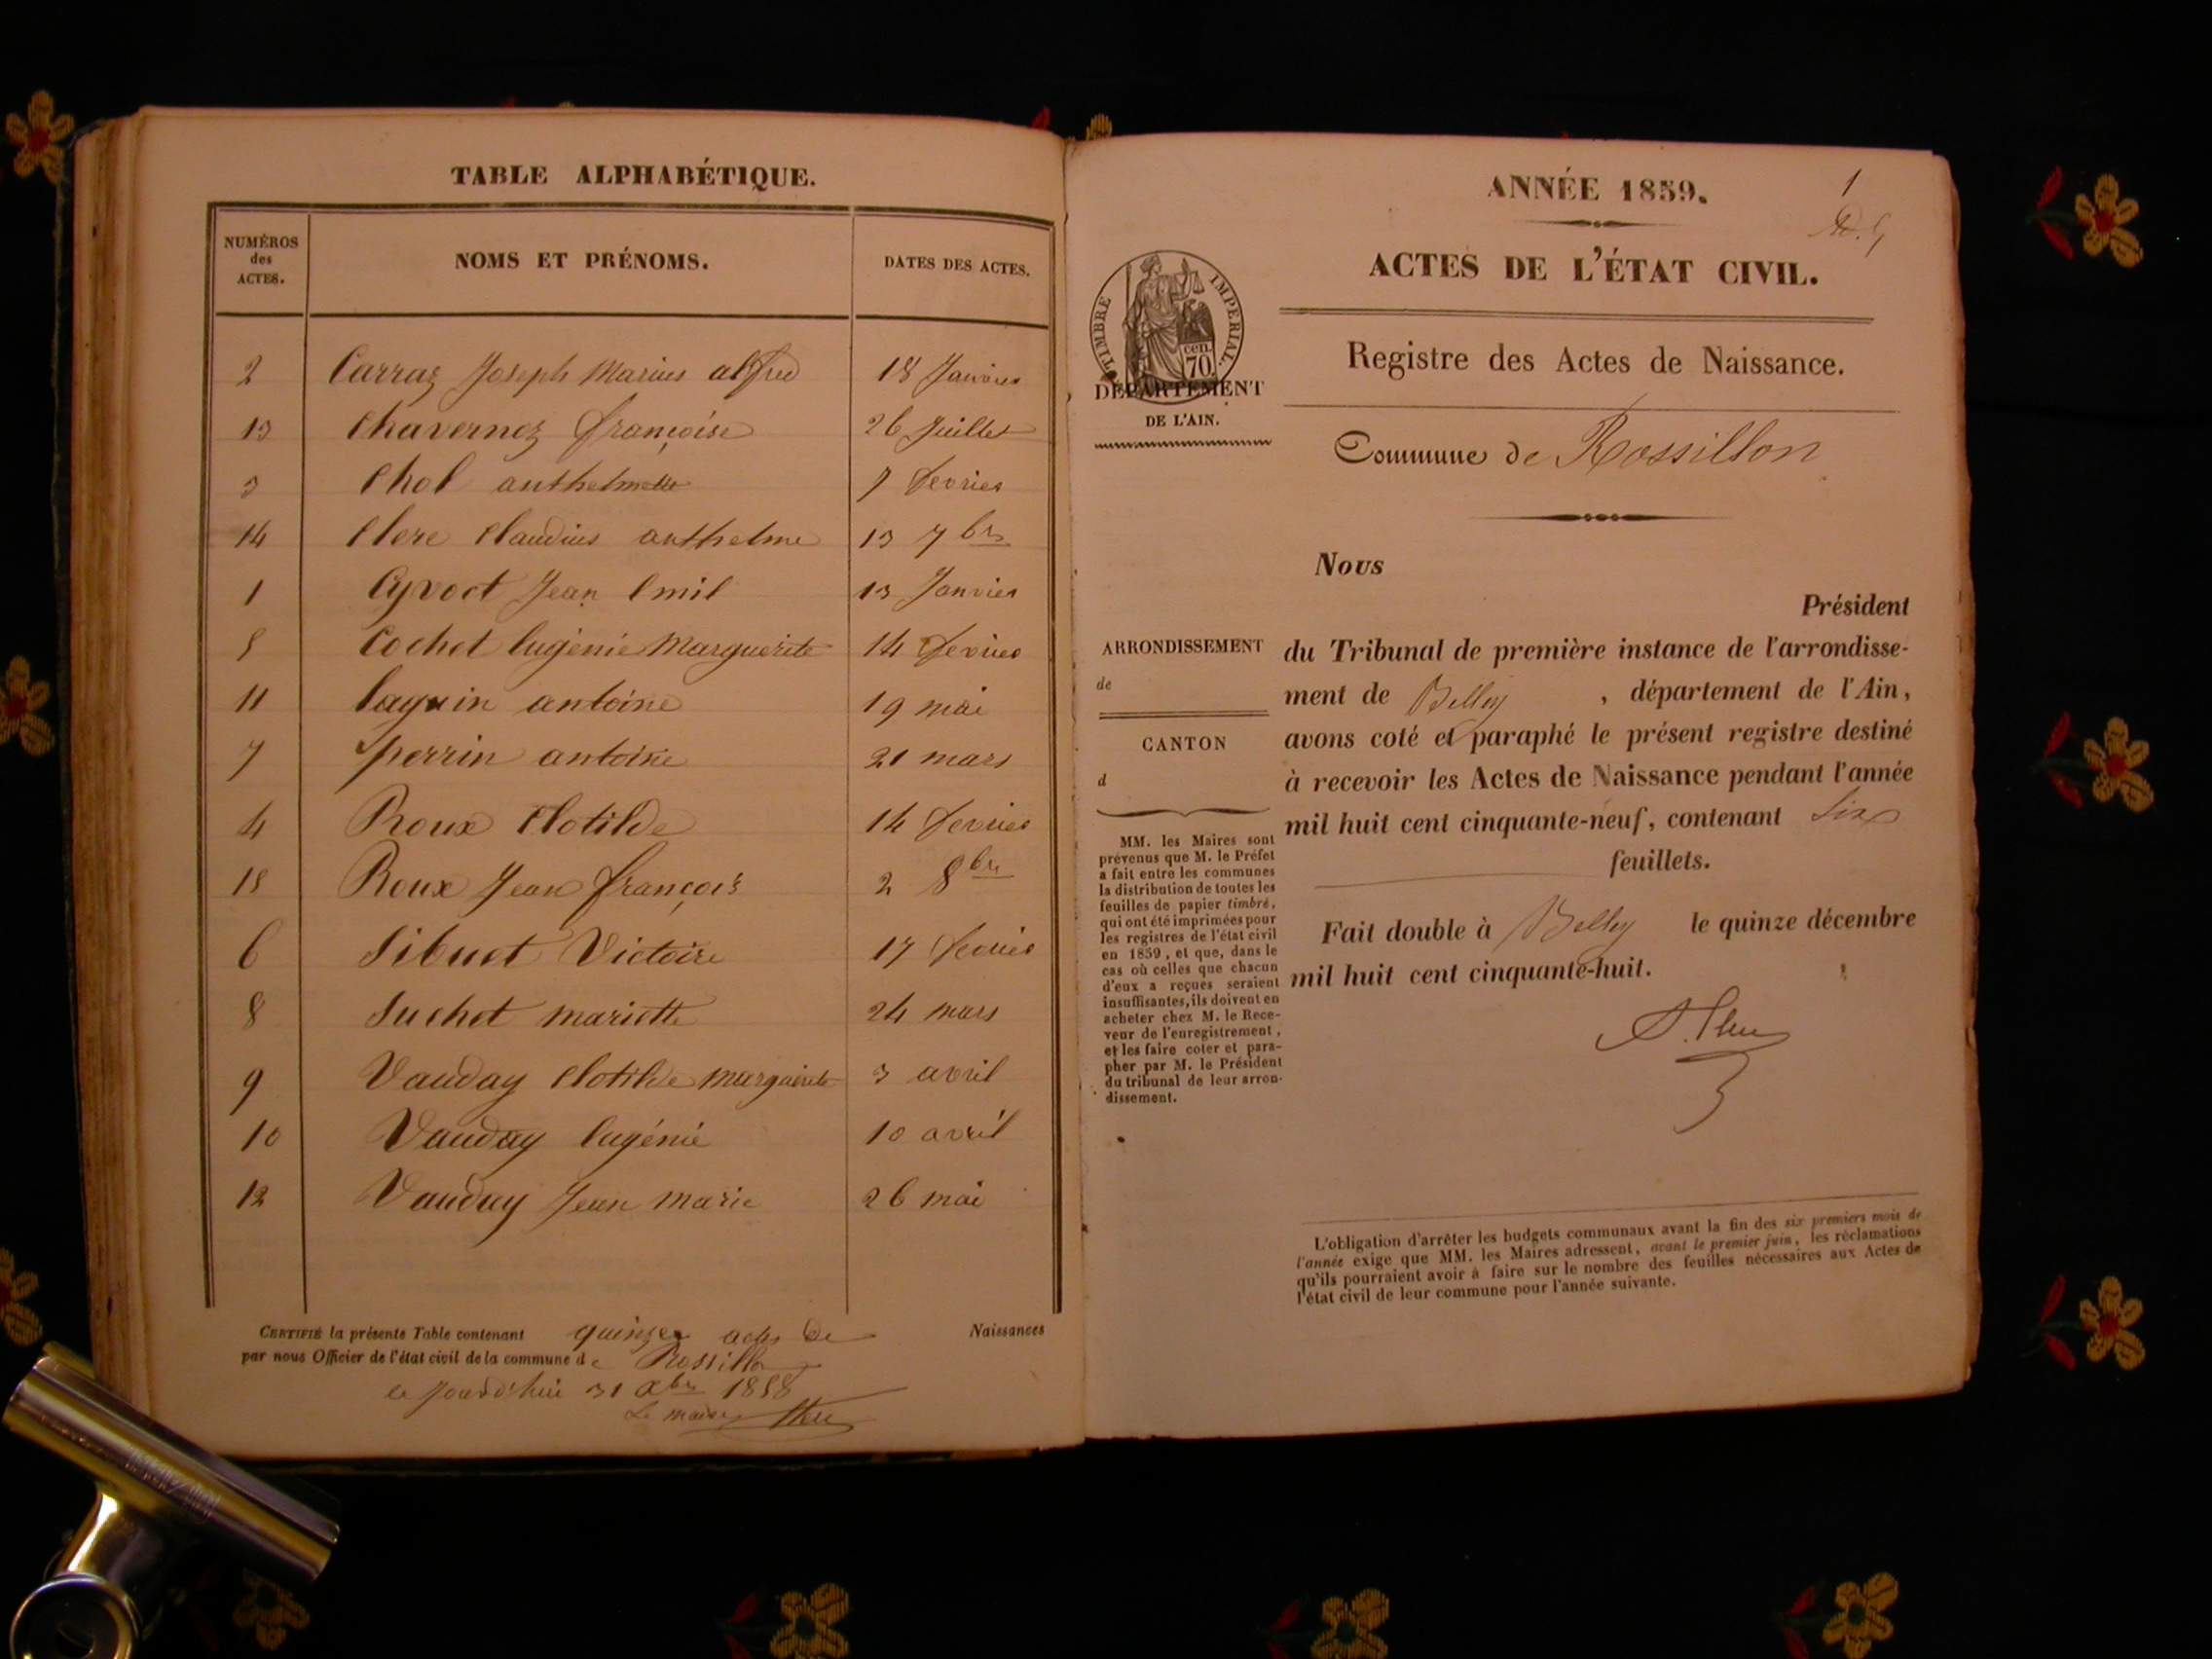 TABLE ALPHABÉTIQUE.
NUMÉROS des ACTES. NOMS ET PRÉNOMS. DATES DES ACTES.
2 Carraz Joseph Marius alfred 18 Janvier
13 Chavernoz françoise 26 Juillet
3 Chol anthelmette 7 fevrier
14 Clerc Claudius anthelme 13 7bre
1 Cyvoct Jean Emil 13 Janvier
5 Cochet Eugénie Marguerite 14 fevrier
11 Laguin antoine 19 mai
7 perrin antoine 21 mars
4 Roux Clotilde 14 fevrier
15 Roux Jean françois 2 8bre
6 Sibuet Victoire 17 fevrier
8 Suchet mariette 24 mars
9 Vauday Clotilde marguerite 3 avril
10 Vauday Eugénie 10 avril
12 Vauday Jean marie 26 mai
CERTIFIÉ la présente Table contenant quinze actes de Naissances
par nous Officier de l'état civil de la commune de Rossillon
ce jourd'hui 31 Xbre 1858
Le maire
ANNÉE 1859.
1
ACTES DE L'ÉTAT CIVIL.
TIMBRE IMPERIAL.
70 cen.
DÉPARTEMENT
DE L'AIN.
Registre des Actes de Naissance.
Commune de Rossillon
Nous
Président
ARRONDISSEMENT
de
CANTON
d
du Tribunal de première instance de l'arrondisse-
ment de Belley, département de l'Ain,
avons coté et paraphé le présent registre destiné
à recevoir les Actes de Naissance pendant l'année
mil huit cent cinquante-neuf, contenant Six
feuillets.
Fait double à Belley le quinze décembre
mil huit cent cinquante-huit.
MM. les Maires sont
prévenus que M. le Préfet
a fait entre les communes
la distribution de toutes les
feuilles de papier timbré,
qui ont été imprimées pour
les registres de l'état civil
en 1859, et que, dans le
cas où celles que chacun
d'eux a reçues seraient
insuffisantes, ils doivent en
acheter chez M. le Rece-
veur de l'enregistrement,
et les faire coter et para-
pher par M. le Président
du tribunal de leur arron-
dissement.
L'obligation d'arrêter les budgets communaux avant la fin des six premiers mois de
l'année exige que MM. les Maires adressent, avant le premier juin, les réclamations
qu'ils pourraient avoir à faire sur le nombre des feuilles nécessaires aux Actes de
l'état civil de leur commune pour l'année suivante.